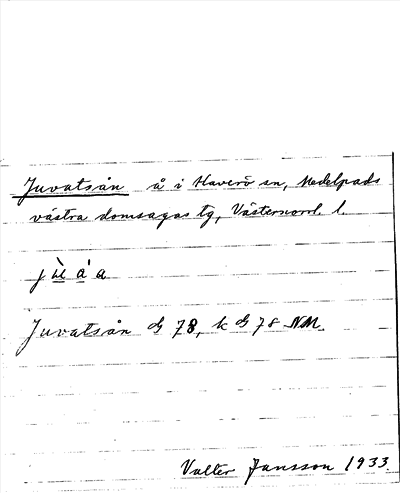 Juvatsån å i Haverö sn, Medelpads
västra domsagas tg, Västernorrl. l.
Juvatsån dg 78, k dg 78 NM.
Valter Jansson 1933